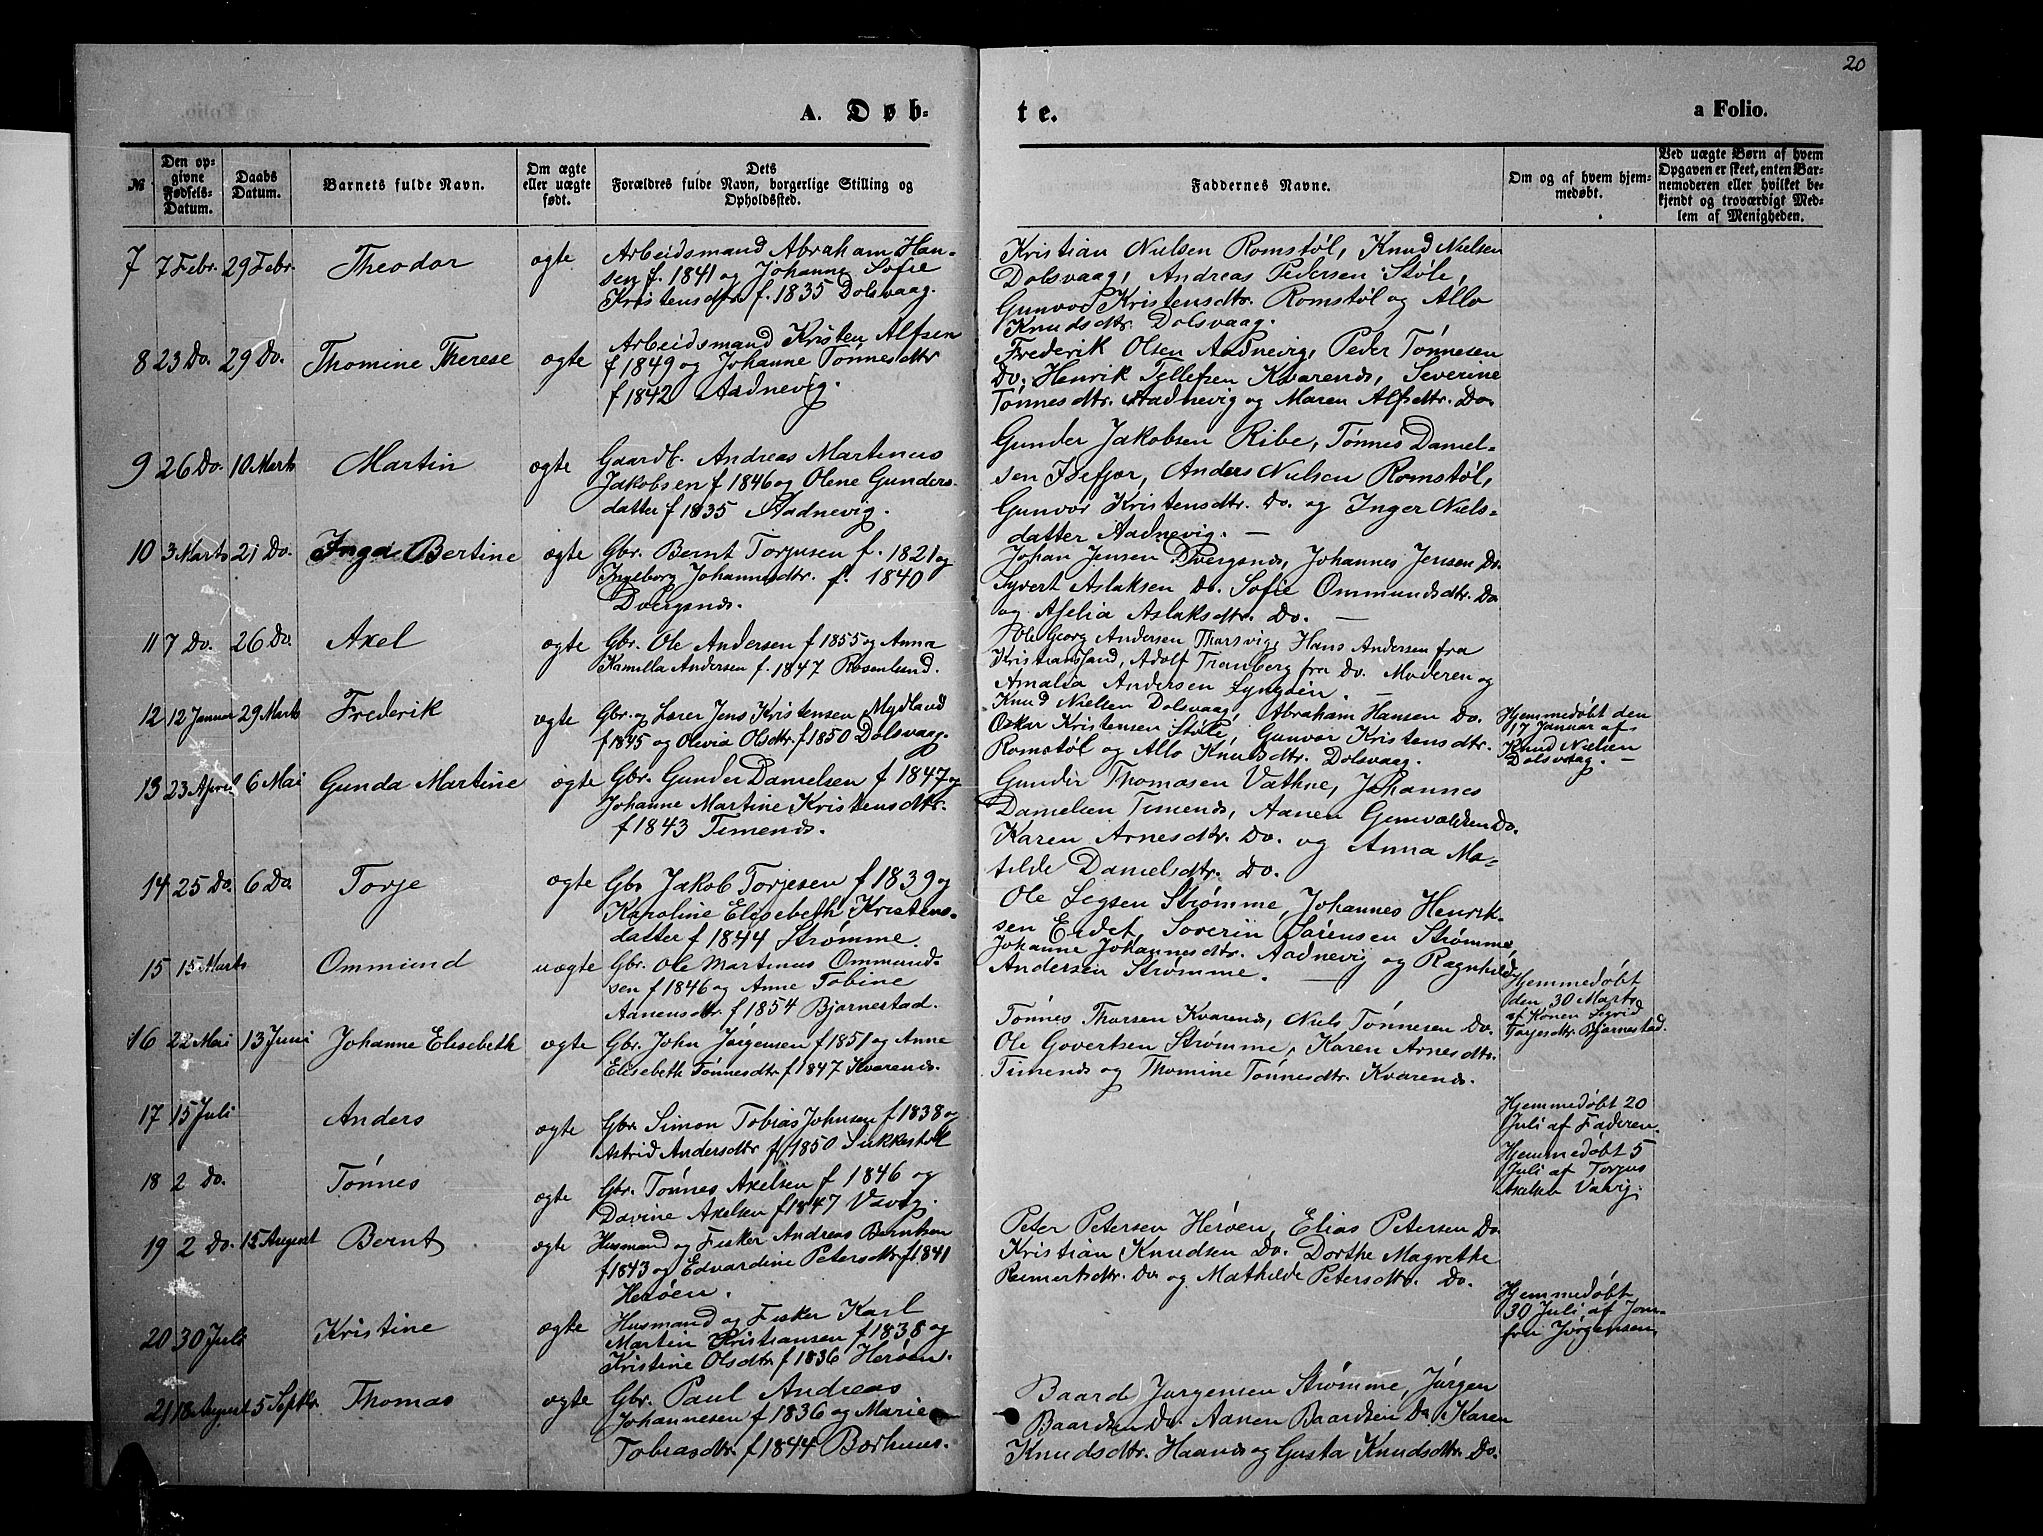 20
A. Døb-
te.
a Folio.
№
Den op-
givne
Fødsels-
Datum.
Daabs
Datum.
Barnets fulde Navn.
Om ægte
eller uægte
født.
Dets
Forældres fulde Navn, borgerlige Stilling og
Opholdssted.
Faddernes Navne.
Om og af hvem hjem-
medøbt.
Ved uægte Børn af hvem
Opgaven er skeet, enten Bar-
nemoderen eller hvilket be-
kjendt og troværdigt Med-
lem af Menigheden.
7 7 Febr. 29 Febr. Theodor ægte
Arbeidsmand Abraham Han-
sen f. 1841 og Johanne Sofie
Kristensdtr f. 1835 Dolsvaag.
Kristian Nielsen Romstøl, Knud Nielsen
Dolsvaag, Andreas Pedersen Støle,
Gunvor Kristensdtr. Romstøl og Allo
Knudsdtr. Dolsvaag.
8 23 Do. 29 Do. Thomine Therese ægte
Arbeidsmand Kristen Alfsen
f 1849 og Johanne Tønnesdtr
f 1842 Aadnevig.
Frederik Olsen Aadnevig, Peder Tønnesen
Do. Henrik Tellefsen Kvarends, Severine
Tønnesdtr. Aadnevig og Maren Alfsdtr. Do.
9 26 Do. 10 Marts Martin ægte
Gaardb. Andreas Martinus
Jakobsen f 1846 og Olene Gunders-
datter f 1835 Aadnevig.
Gunder Jakobsen Ribe, Tønnes Daniel-
sen Isefjær, Anders Nielsen Romstøl,
Gunvor Kristensdtr. Do. og Inger Niels-
datter Aadnevig. —
10 3 Marts 21 Do. Inga Bertine ægte
Gbr. Bernt Torjusen f. 1821 og
Ingeborg Johannesdtr. f. 1840
Dvergsnes.
Johan Jensen Dvergsnes, Johannes Jensen Do.
Syvert Aslaksen Do. Sofie Ommundsdtr. Do
og Aselia Aslaksdtr. Do. —
11 7 Do. 26 Do. Axel ægte
Gbr. Ole Andersen f 1855 og Anna
Kamilla Andersen f. 1847 Rosenlund.
Ole Georg Andersen Tharsvig, Hans Andersen fra
Kristianssand, Adolf Tranberg fra Do. Moderen og
Amalia Andersen Lyngøen. —
12 12 Januar 29 Marts Frederik ægte
Gbr. og Lærer Jens Kristensen Mydland
f 1845 og Olivia Olsdtr. f 1850 Dolsvaag.
Knud Nielsen Dolsvaag, Abraham Hansen Do.
Oskar Kristensen Støle, Gunvor Kristensdtr.
Romstøl og Allo Knudsdtr. Dolsvaag.
Hjemmedøbt den
17 Januar af
Knud Nielsen
Dolsvaag. —
13 23 April 6 Mai Gunda Martine ægte
Gbr. Gunder Danielsen f 1847 og
Johanne Martine Kristensdtr.
f 1843 Timenes.
Gunder Thomasen Vathne, Johannes
Danielsen Timenes, Aanen Gunvaldsen Do.
Karen Arnesdtr. Do. og Anna Ma-
tilde Danielsdtr. Do.
14 25 Do. 6 Do. Torje ægte
Gbr Jakob Torjesen f 1839 og
Karoline Elisebeth Kristens-
datter f 1844 Strømme.
Ole Legsen Strømme, Johannes Henrik-
sen Eidet, Soverin Sørensen Strømme,
Johanne Johannesdtr. Aadnevig og Ragnhild
Andersen Strømme. —
15 15 Marts Ommund uægte
Gbr. Ole Martinus Ommund-
sen f 1846 og Anne Tobine
Aanensdtr. f 1854 Bjørnestad.
Hjemmedøbt
den 30 Marts
af Konen Sigrid
Torjesdtr. Bjørnestad.
16 22 Mai 13 Juni Johanne Elisebeth ægte
Gbr. John Jørgensen f 1851 og Anne
Elisebeth Tønnesdtr f 1847 Kvarenes.
Tønnes Thorsen Kvarends, Niels Tønnesen Do.
Ole Govertsen Strømme, Karen Arnesdtr.
Timenes og Thomine Tønnesdtr. Kvarenes.
17 15 Juli Anders ægte
Gbr Simon Tobias Johnsen f 1838 og
Astrid Andersdtr f 1850 Sukkestøl
Hjemmedøbt 20
Juli af Faderen.
18 2 Do. Tønnes ægte
Gbr. Tønnes Axelsen f 1846 og
Davine Axelsen f 1847
Hjemmedøbt 5
Juli af Torjus
Axelsen
19 2 Do. 15 August Bernt ægte
Husmand og Fisker Andreas Berntsen
f 1843 og Edvardine Petersdtr f 1841
Herøen.
Peter Petersen Herøen, Elias Petersen Do
Kristian Knudsen Do. Dorthe Magrethe
Reinertsdtr. Do og Mathilde Petersdtr. Do.
20 30 Juli Kristine ægte
Husmand og Fisker Karl
Martin Kristiansen f 1838 og
Kristine Olsdtr. f 1836 Herøen.
Hjemmedøbt
30 Juli af Jom-
fru Jørgensen,
21 18 August 5 Septbr. Thomas ægte
Gbr. Paul Andreas
Johannesen f 1836 og Marie
Tobiasdtr. f 1844 Børhuus.
Baard Jørgensen Strømme, Jørgen
Baardsen Do. Aanen Baardsen Do. Karen
Knudsdtr. Haanes og Gusta Knudsdtr. Do.